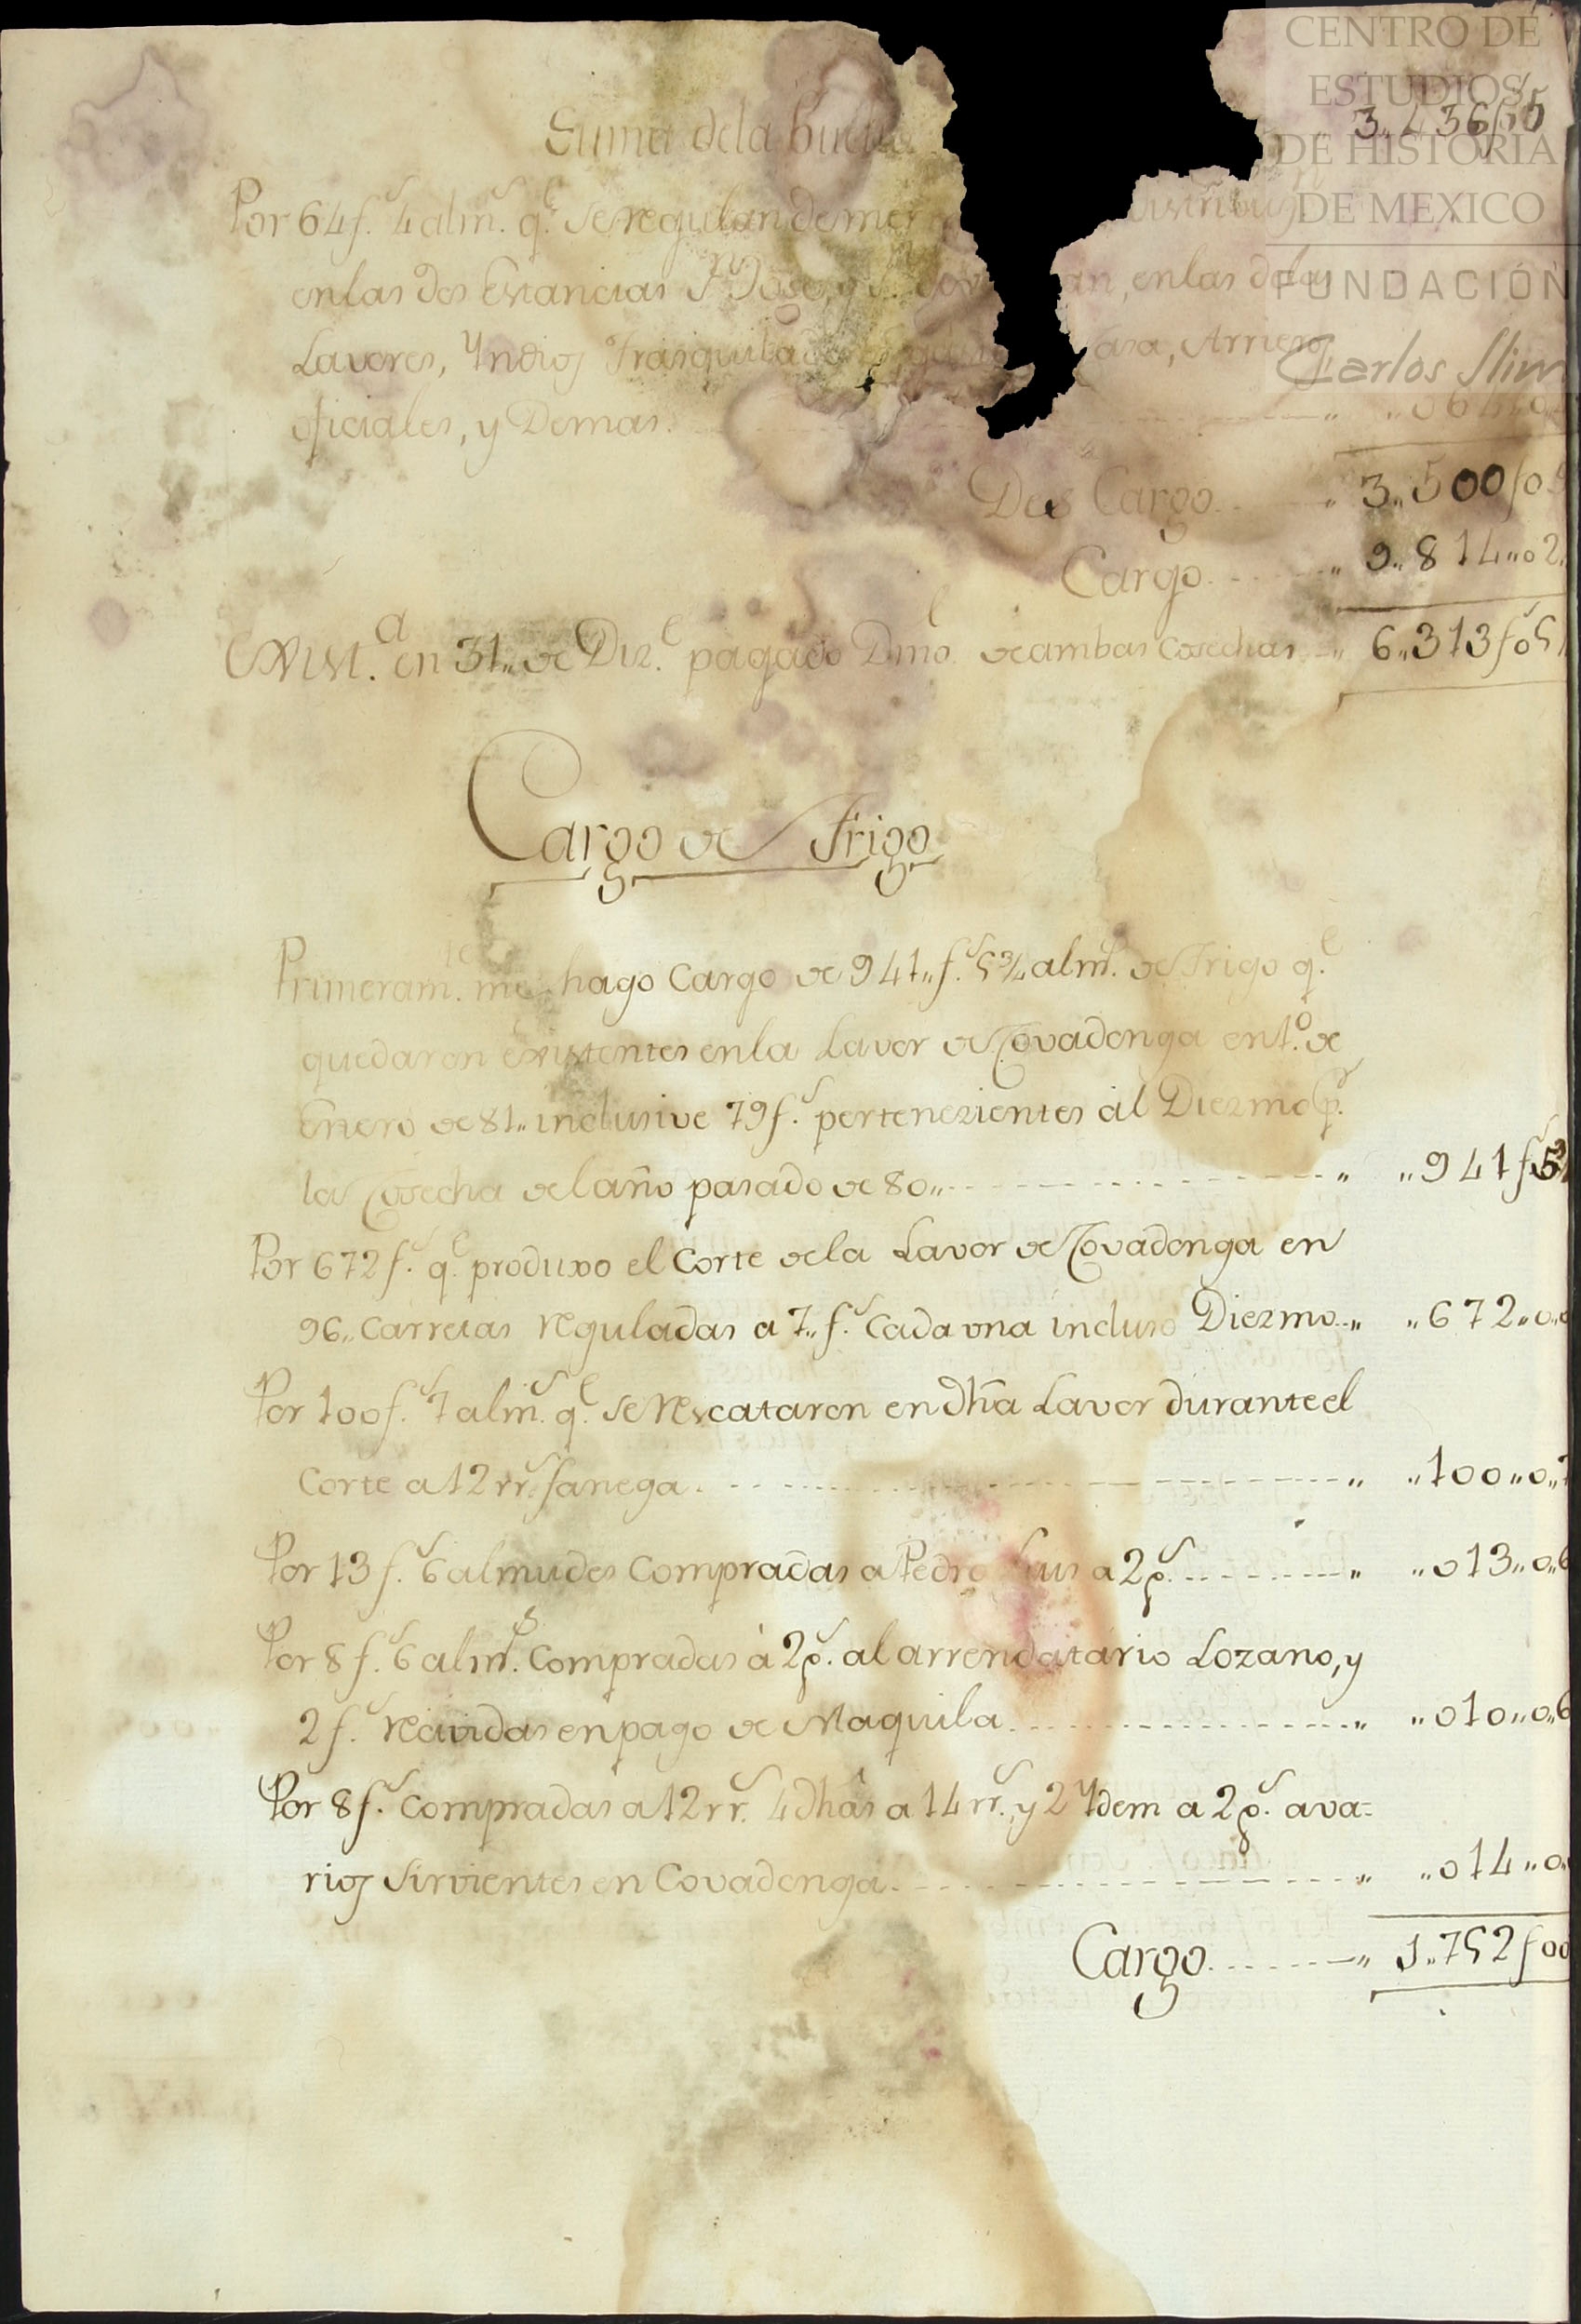 CENTRO DE
ESTUDIOS
DE HISTORIA
DE MEXICO
FUNDACIÓN
Carlos Slim
Suma de la buelta 3,,436f05
Por 64 fs. 4 alms. qe. se regulan de mer
en las dos Estancias Sn. Jose, y an, en las delas
Lavores, Yndios Trasquilad asa, Arrieros
oficiales, y Demas.
Des Cargo 3,,500f05
Cargo 9,,814,,02
Exista. en 31,, de Dize. pagado Dmo. de ambas Cosechas 6,,313f05
Cargo de Trigo
Primeramte. me hago Cargo de 941,, fs. 5¾ alms. de Trigo qe.
quedaron existentes en la Lavor de Covadonga en 1o. de
Enero de 81,, inclusive 79 fs. pertenezientes al Diezmo pr.
la Cosecha del año pasado de 80,, 941fs5
Por 672 fs. qe. produxo el Corte de la Lavor de Covadonga en
96,, Carretas reguladas a 7,, fs. Cada una incluso Diezmo 672,,0
Por 100 fs. 7 alms. qe. se rescataron en dha Lavor durante el
Corte a 12 rrs. fanega 100,,0,,7
Por 13 fs. 6 almudes Compradas a Pedro Luis a 2 ps. 013,,0,,6
Por 8 fs. 6 alms. Compradas à 2 ps. al arrendatario Lozano, y
2 fs. recividas en pago de Maquila 010,,0,,6
Por 8 fs. Compradas a 12 rrs. 4 dhas a 14 rrs. y 2 Ydem a 2 ps. a va=
rios Sirvientes en Covadonga 014,,0
Cargo 1,,752f00